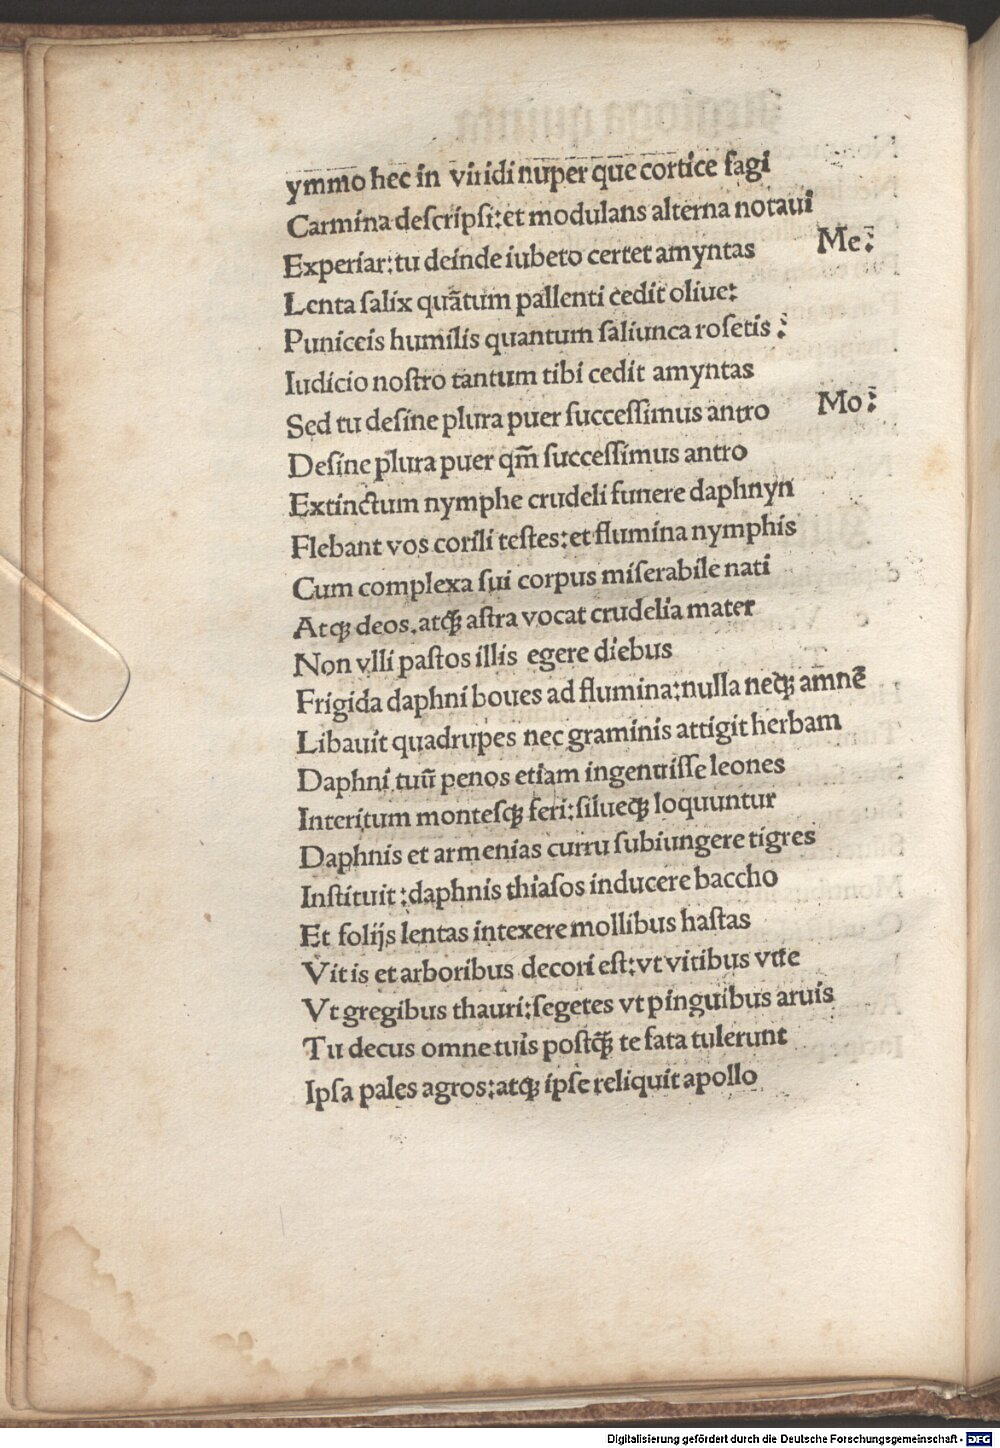 ymmo hec in viridi nuper que cortice fagi
Carmina deſcripſi:et modulans alterna notaui
Experiar:tu deinde iubeto certet amyntas Me:
Lenta ſalix quãtum pallenti cedit oliue:
Puniceis humilis quantum ſaliunca roſetis :
Iudicio noſtro tantum tibi cedit amyntas
Sed tu deſine plura puer ſucceſſimus antro Mo:
Deſine plura puer qm̃ ſucceſſimus antro
Extinctum nymphe crudeli funere daphnyn
Flebant vos corili teſtes:et flumina nymphis
Cum complexa ſui corpus miſerabile nati
Atqꝫ deos.atqꝫ aſtra vocat crudelia mater
Non vlli paſtos illis egere diebus
Frigida daphni boues ad flumina:nulla neqꝫ amnẽ
Libauit quadrupes nec graminis attigit herbam
Daphni tuũ penos etiam ingemuiſſe leones
Interitum monteſqꝫ feri:ſilueqꝫ loquuntur
Daphnis et armenias curru ſubiungere tigres
Inſtituit:daphnis thiaſos inducere baccho
Et folijs lentas intexere mollibus haſtas
Vitis et arboribus decori eſt:vt vitibus vue
Vt gregibus thauri:ſegetes vt pinguibus aruis
Tu decus omne tuis poſtqꝫ̃ te fata tulerunt
Ipſa pales agros:atqꝫ ipſe reliquit apollo
Digitalisierung gefördert durch die Deutsche Forschungsgemeinschaft - DFG